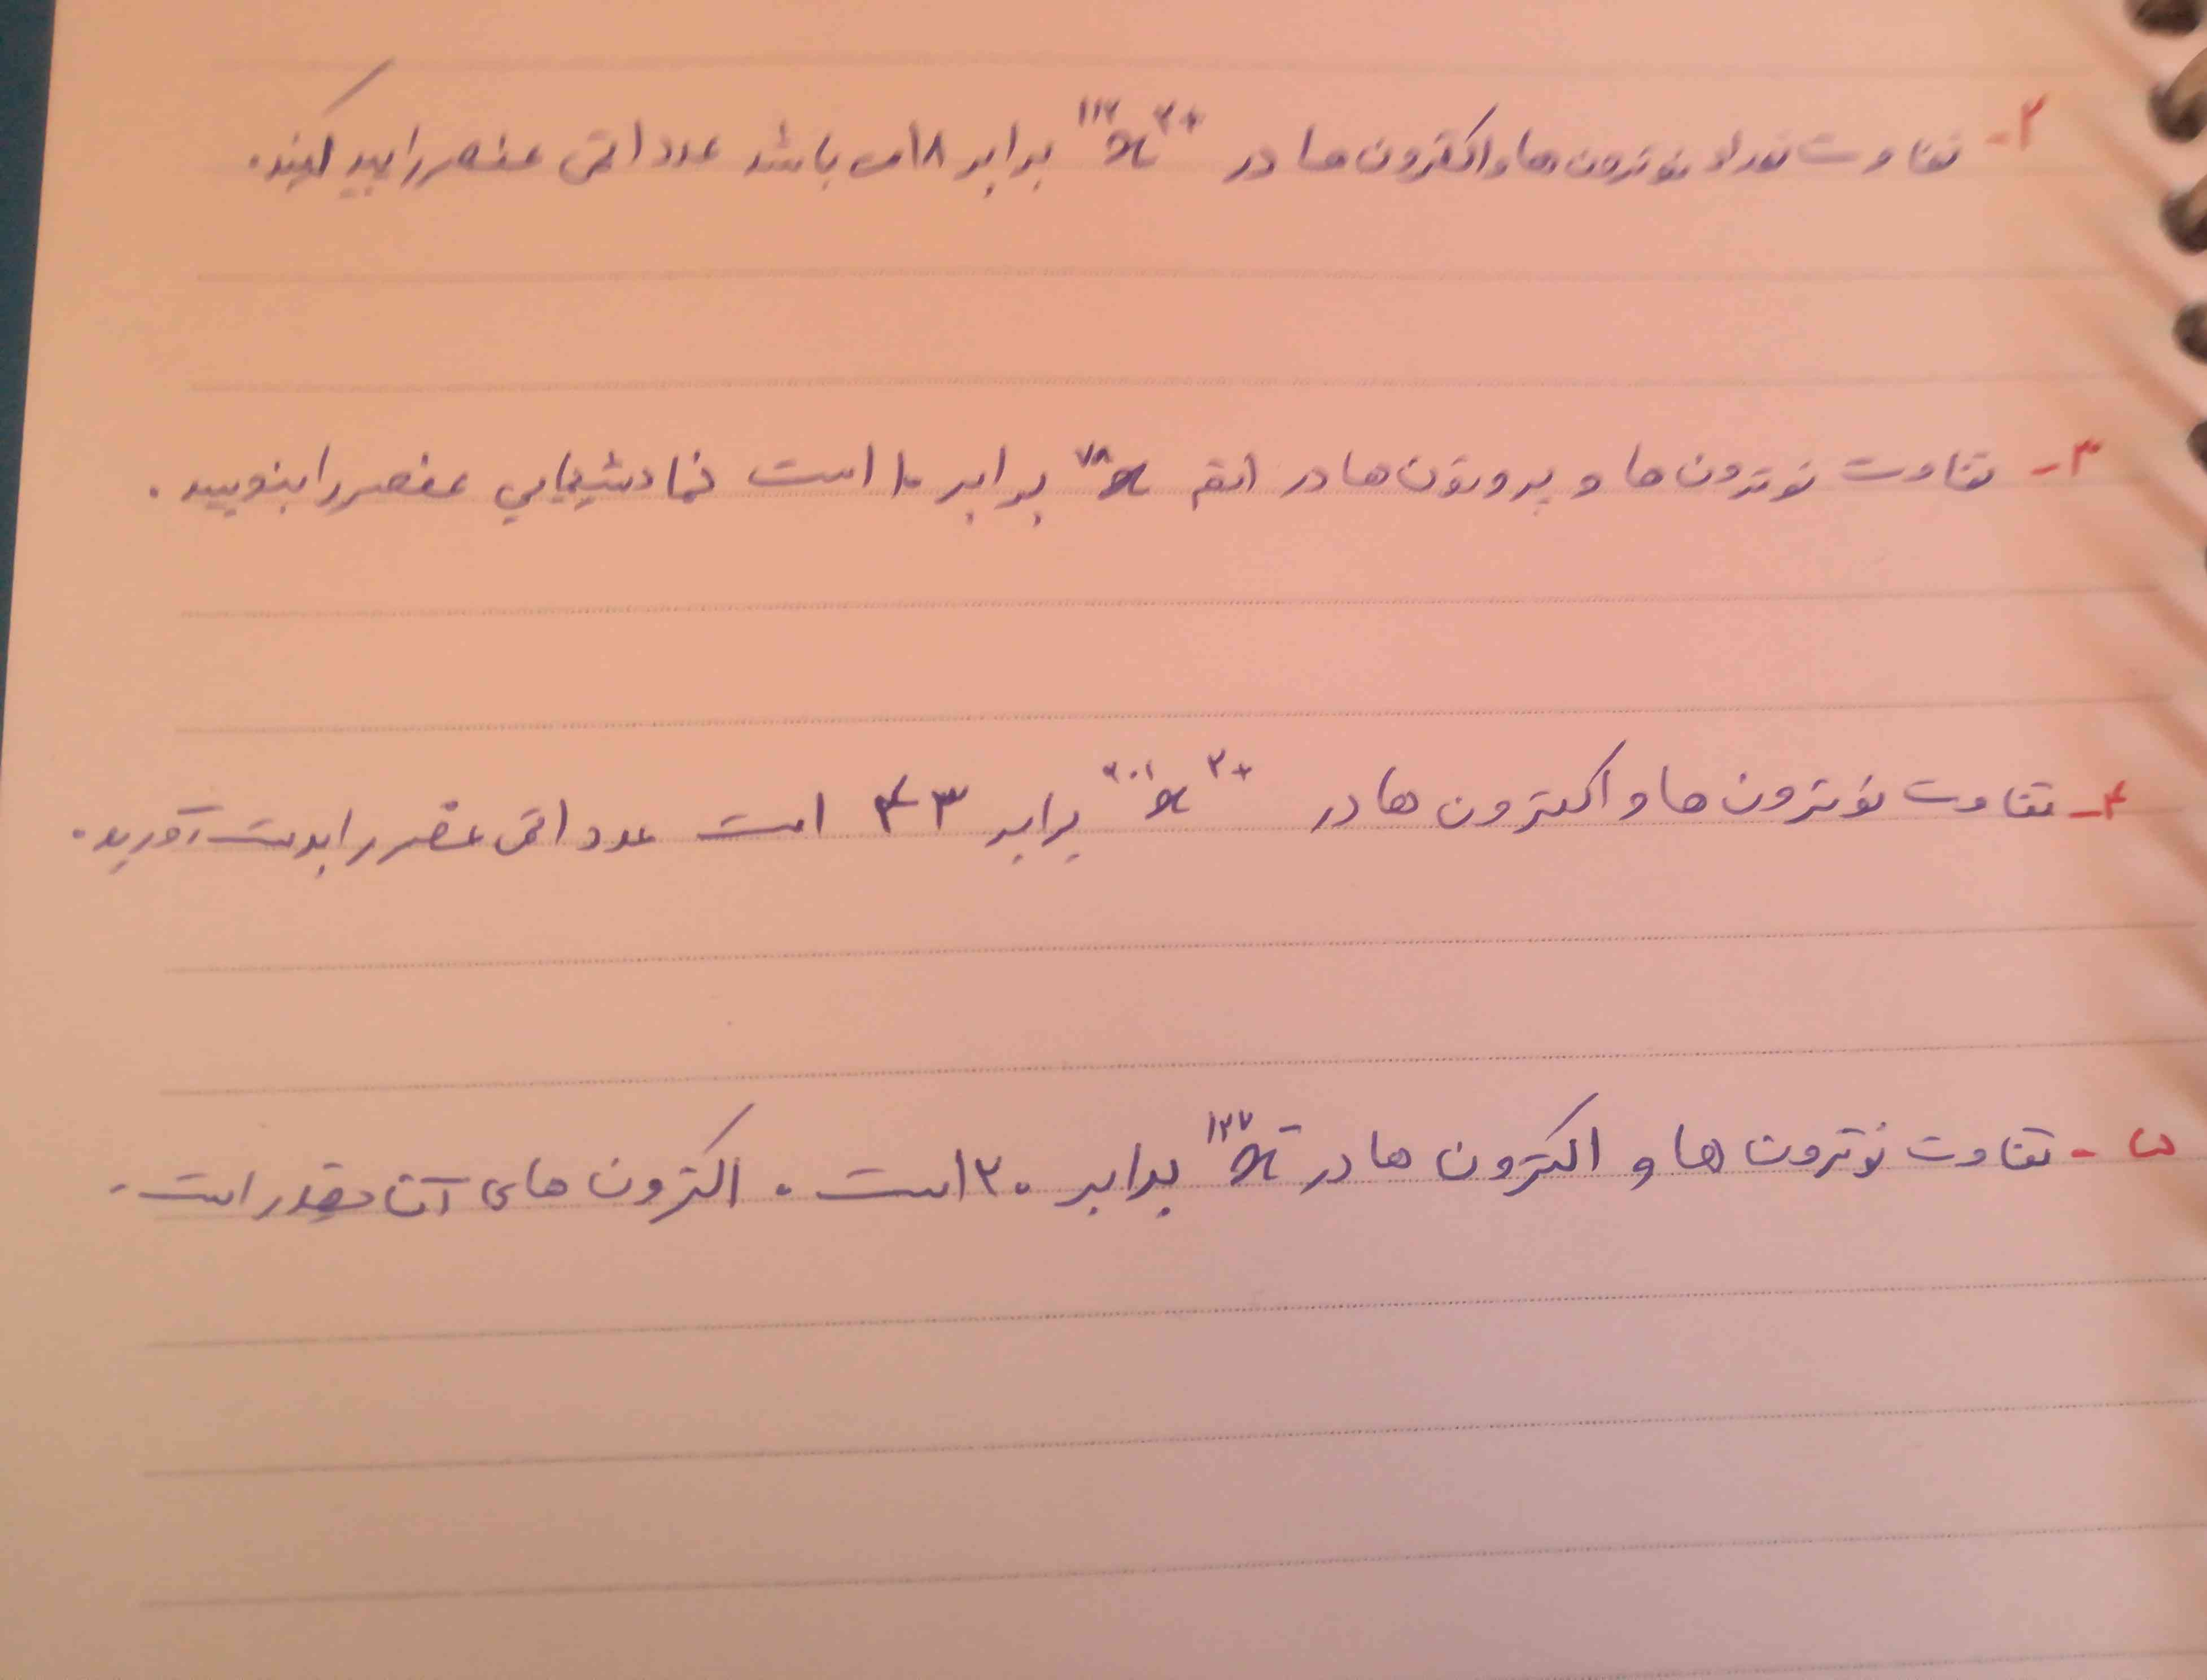 ۲- تفاوت تعداد نوترون ها و الکترون ها در ¹¹²x²⁺ برابر ۱۸ می باشد عدد اتمی عنصر را پیدا کنید.
۳- تفاوت نوترون ها و پروتون ها در اتم ⁷⁸x برابر ۱۰ است نماد شیمیایی عنصر را بنویسید.
۴- تفاوت نوترون ها و الکترون ها در ²⁰¹x²⁺ برابر ۴۳ است عدد اتمی عنصر را بدست آورید.
۵- تفاوت نوترون ها و الکترون ها در ¹²⁷x⁻ برابر ۲۰ است. الکترون های آن چقدر است.